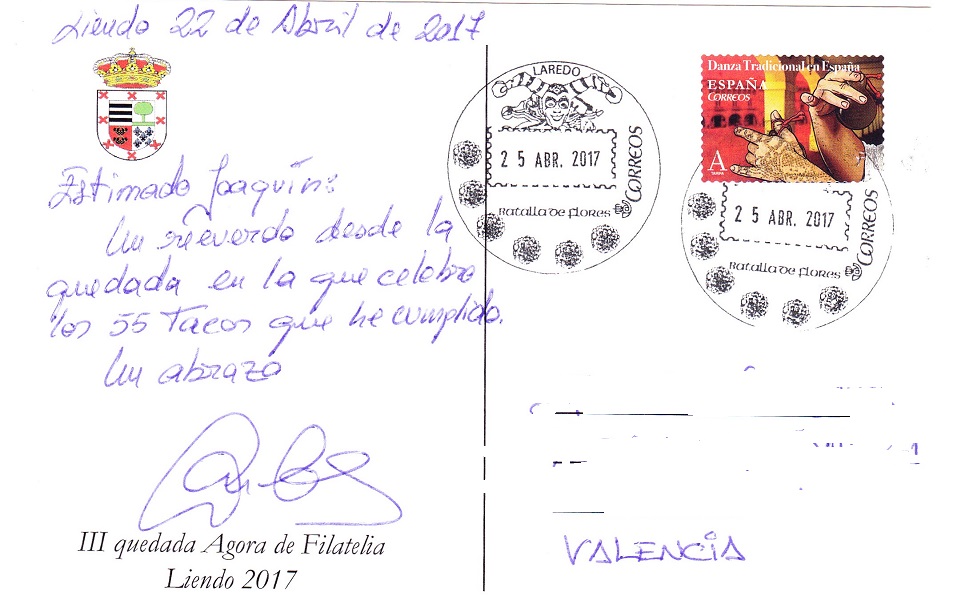 Liendo 22 de Abril de 2017
Estimado Joaquín:
Un recuerdo desde la
quedada en la que celebro
los 55 Tacos que he cumplido.
Un abrazo
III quedada Agora de Filatelia
Liendo 2017
LAREDO
25 ABR. 2017
CORREOS
Batalla de flores
Danza Tradicional en España
ESPAÑA
CORREOS
A
TARIFA
25 ABR. 2017
CORREOS
Batalla de flores
VALENCIA